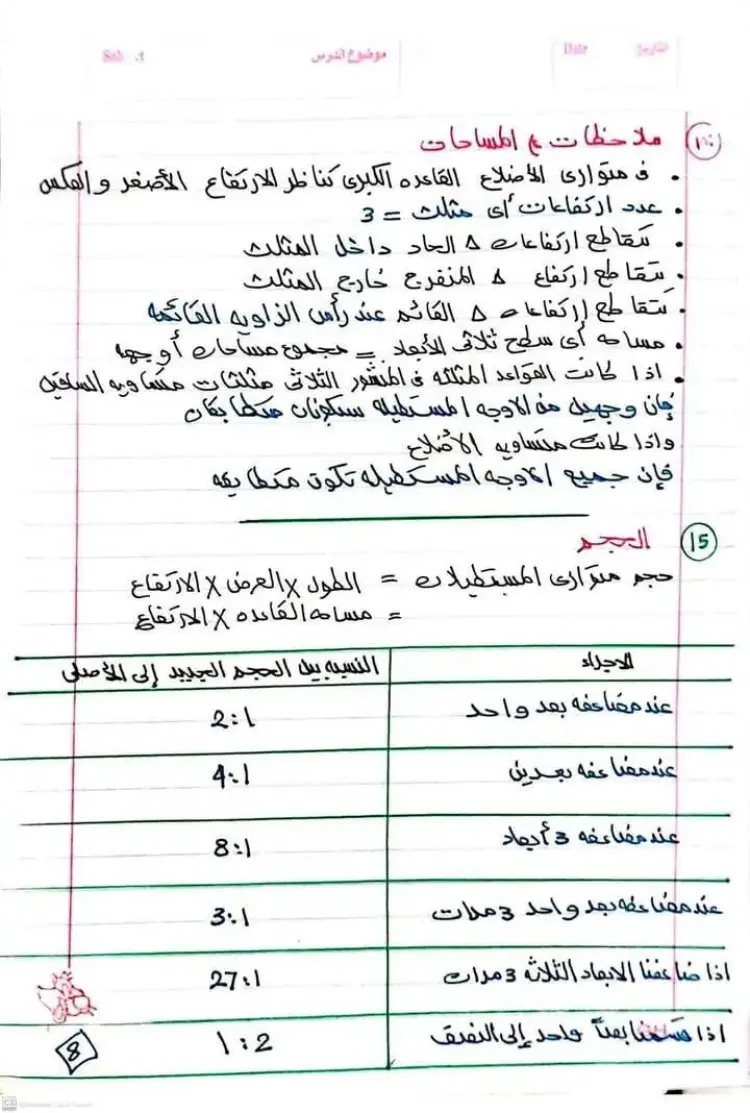 التاريخ
Date
موضوع الدرس
Sub
ملاحظات ع المساحات
• فى متوازى الأضلاع القاعده الكبرى تناظر الارتفاع الأصغر والعكس
• عدد ارتفاعات أى مثلث = 3
• تتقاطع ارتفاعات △ الحاد داخل المثلث
• تتقاطع ارتفاع △ المنفرج خارج المثلث
• تتقاطع ارتفاعات △ القائم عند رأس الزاويه القائمه
• مساحه أى سطح ثلاثى الأبعاد = مجموع مساحات أوجهه
• اذا كانت القواعد المثلثه فى المنشور الثلاثى مثلثات متساويه الساقين
فإن وجهين من الاوجه المستطيله سيكونان متطابقان
واذا كانت متساويه الأضلاع
فإن جميع الاوجه المستطيله تكون متطابقه
15 الحجم
حجم متوازى المستطيلات = الطول × العرض × الارتفاع
= مساحه القاعده × الارتفاع
الاجراء النسبه بين الحجم الجديد إلى الأصلى
عند مضاعفه بعد واحد 2:1
عند مضاعفه بعدين 4:1
عند مضاعفه 3 أبعاد 8:1
عند مضاعفه بعد واحد 3 مرات 3:1
اذا ضاعفنا الابعاد الثلاثه 3 مرات 27:1
اذا قسمنا بعداً واحد إلى النصف 1:2
8